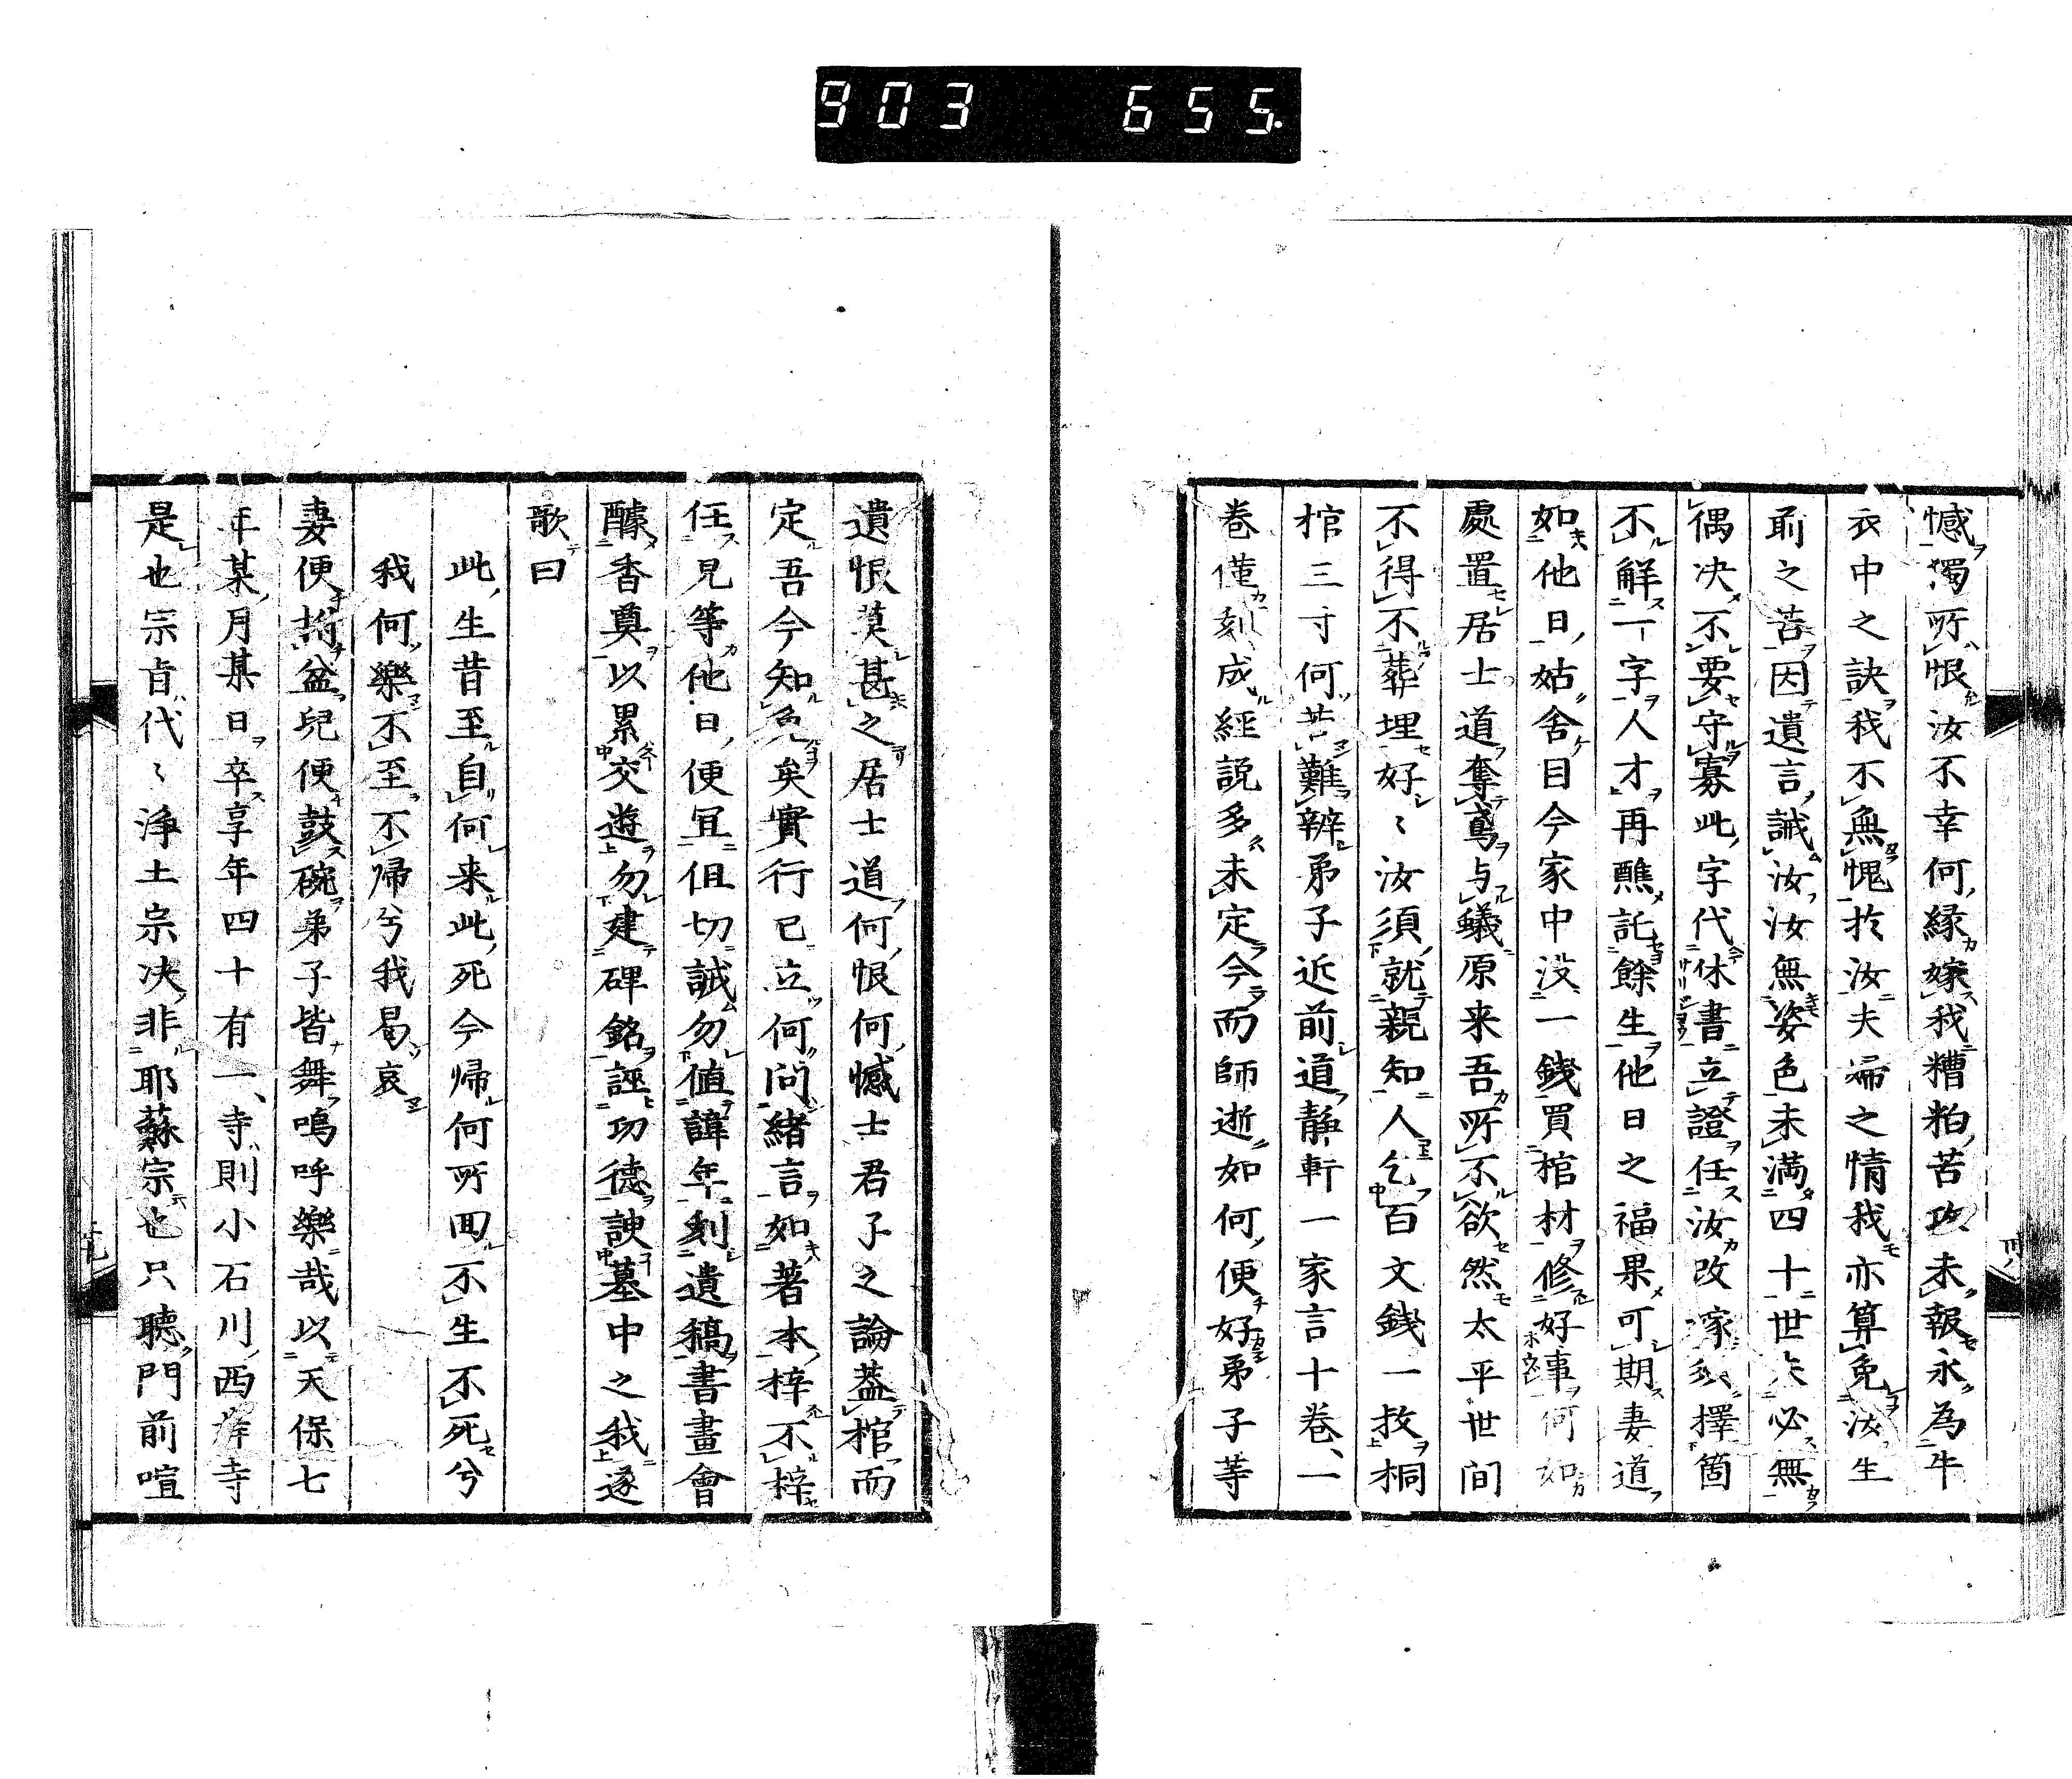 903 655
憾獨所恨汝不幸何緣嫁我糟粕苦攻未報永為牛
衣中之訣我不無愧於汝夫婦之情我亦算免汝生
前之苦因遺言誡汝汝無姿色未満四十世夫必無
偶决不要守寡此字代休書立證任汝改嫁択擇箇
不解一丁字人才再醮託餘生他日之福果可期妻道
如他日姑舍目今家中没一錢買棺材修好事何如
處置居士道奪鳶与蟻原来吾所不欲然太平世间
不得不葬埋好〻汝須就親知人乞百文錢一枚桐
棺三寸何苦難辨弟子近前道靜軒一家言十巻一
巻僅刻成經説多未定今而師逝如何便好弟子等
遺恨莫甚之居士道何恨何憾士君子之論蓋棺而
定吾今知免矣實行已立何问緒言如著本梓不梓
任兒等他日便宜但切誡勿値諱年刻遺稿書畫會
醵香奠以累交遊勿建碑銘誣功德諛墓中之我遂
歌曰
此生昔至自何来此死今帰何所囬不生不死兮
我何樂不至不帰兮我曷哀
妻便拊盆兒便鼓碗弟子皆舞嗚呼樂哉以天保七
年某月某日卒享年四十有一寺則小石川西岸寺
是也宗旨代〻淨土宗决非耶蘇宗也只聽門前喧